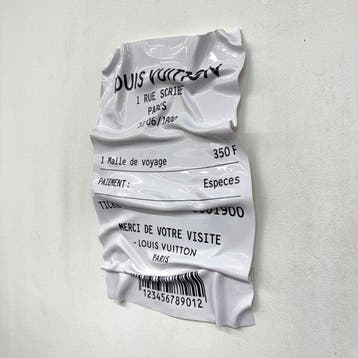 LOUIS VUITTON
1 RUE SCRIBE
PARIS
1 Malle de voyage 350 F
PAIEMENT: Especes
TICKET
MERCI DE VOTRE VISITE
- LOUIS VUITTON
PARIS
123456789012